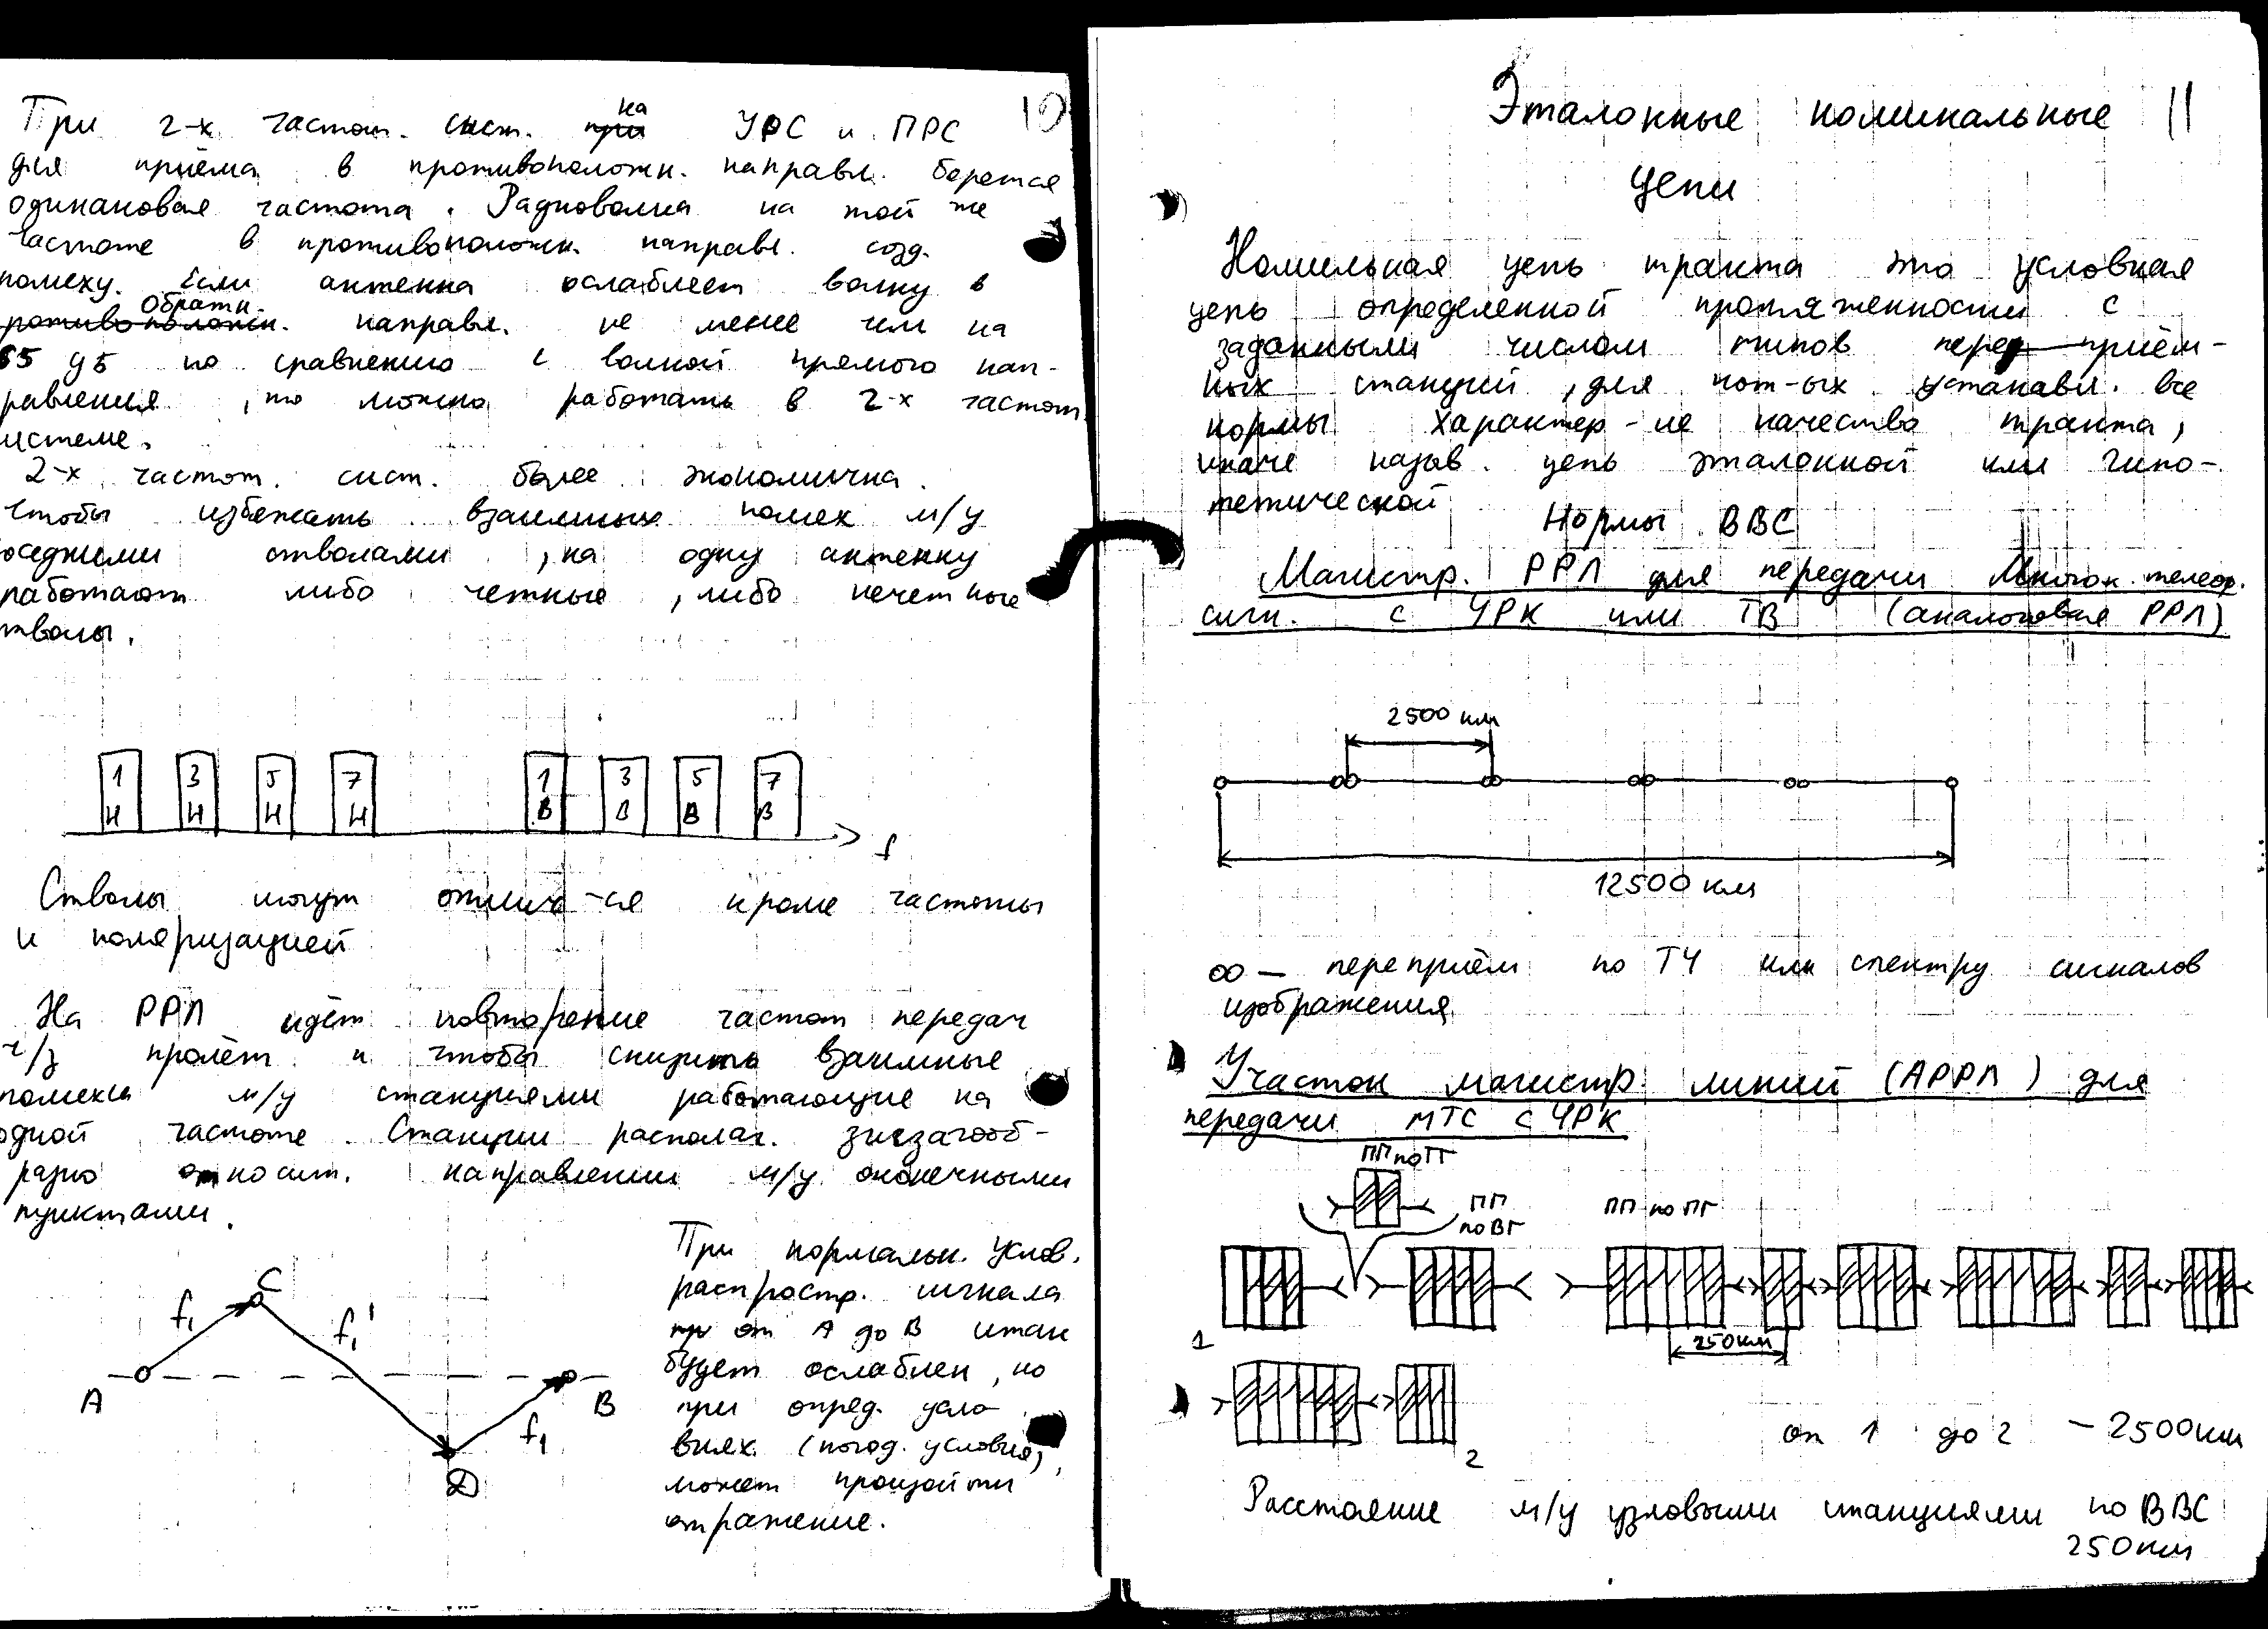 10
При 2-х частот. сист. на УРС и ПРС
для приёма в противоположн. направл. берется
одинаковая частота. Радиоволна на той же
частоте в противоположн. направл. созд.
помеху. Если антенна ослабляет волну в
обратн. направл. не менее чем на
65 дБ по сравнению с волной прямого нап-
равления, то можно работать в 2-х частот
истеме.
2-х частот. сист. более экономична.
Чтобы избежать взаимных помех м/у
оседними стволами, на одну антенну
работают либо четные, либо нечетные
тволы.
1 3 5 7 1 3 5 7
Н Н Н Н В В В В
f
Стволы могут отлич-ся кроме частоты
и поляризацией
На РРЛ идёт повторение частот передач
ч/з пролёт и чтобы снизить взаимные
помехи м/у станциями работающие на
одной частоте. Станции располаг. зигзагооб-
разно относит. направлении м/у оконечными
пунктами.
A f₁ C f₁' D f₁ B
При нормальн. услов.
распростр. сигнала
от А до В сигн
будет ослаблен, но
при опред. усло
виях (погод. условия),
может произойти
отражение.
11
Эталонные номинальные
цепи
Номильная цепь тракта это условная
цепь определенной протяженности с
заданными числом типов пере приём-
ных станций, для кот-ых устанавл. все
нормы характер-ие качество тракта,
иначе назыв. цепь эталонной или гипо-
тетической
Нормы ВВС
Магистр. РРЛ для передачи Многок. телеф.
сигн. с ЧРК или ТВ (аналоговая РРЛ)
2500 км
12500 км
∞ – переприём по ТЧ или спектру сигналов
изображения
Участок магистр. линий (АРРЛ) для
передачи МТС с ЧРК
ПП по ТГ
ПП
по ВГ
ПП по ПГ
1
250 км
2
от 1 до 2 – 2500 км
Расстояние м/у узловыми станциями по ВВС
250 км